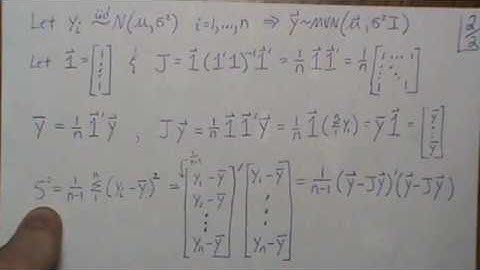 Let Yᵢ ~iid N(μ, σ²) i=1,...,n ⇒ y⃗ ~ MVN(μ⃗, σ²I)
2/2
Let 1⃗ = [1 ⋮ 1] & J = 1⃗(1⃗'1⃗)⁻¹1⃗' = 1/n 1⃗1⃗' = 1/n [1 ⋯ 1 ⋮ ⋱ ⋮ 1 ⋯ 1]
ȳ = 1/n 1⃗'y⃗ , Jy⃗ = 1/n 1⃗1⃗'y⃗ = 1/n 1⃗(Σyᵢ) = ȳ1⃗ = [ȳ ⋮ ȳ]
S² = 1/(n-1) Σ(yᵢ-ȳ)² = 1/(n-1) [y₁-ȳ y₂-ȳ ⋮ yₙ-ȳ]' [y₁-ȳ ⋮ yₙ-ȳ] = 1/(n-1) (y⃗-Jy⃗)'(y⃗-Jy⃗)